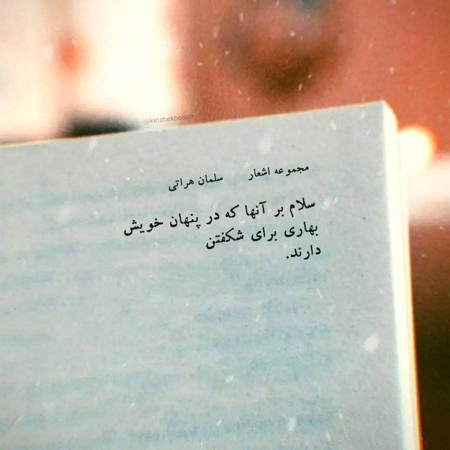 مجموعه اشعار سلمان هراتی
سلام بر آنها که در پنهان خویش
بهاری برای شکفتن
دارند.